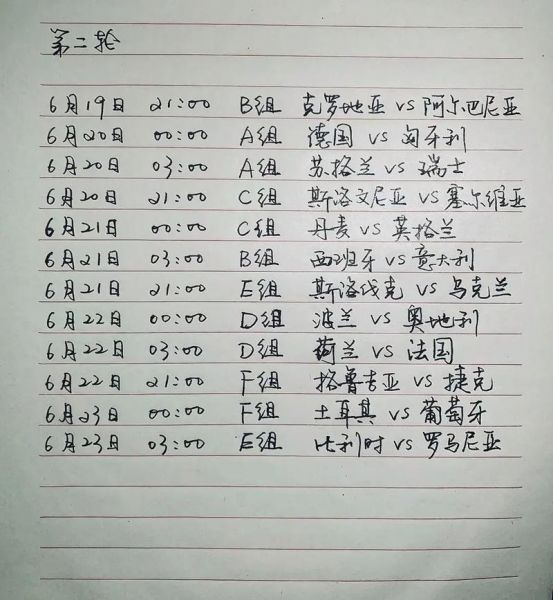 第二轮
6月19日 21:00 B组 克罗地亚 vs 阿尔巴尼亚
6月20日 00:00 A组 德国 vs 匈牙利
6月20日 03:00 A组 苏格兰 vs 瑞士
6月20日 21:00 C组 斯洛文尼亚 vs 塞尔维亚
6月21日 00:00 C组 丹麦 vs 英格兰
6月21日 03:00 B组 西班牙 vs 意大利
6月21日 21:00 E组 斯洛伐克 vs 乌克兰
6月22日 00:00 D组 波兰 vs 奥地利
6月22日 03:00 D组 荷兰 vs 法国
6月22日 21:00 F组 格鲁吉亚 vs 捷克
6月23日 00:00 F组 土耳其 vs 葡萄牙
6月23日 03:00 E组 比利时 vs 罗马尼亚